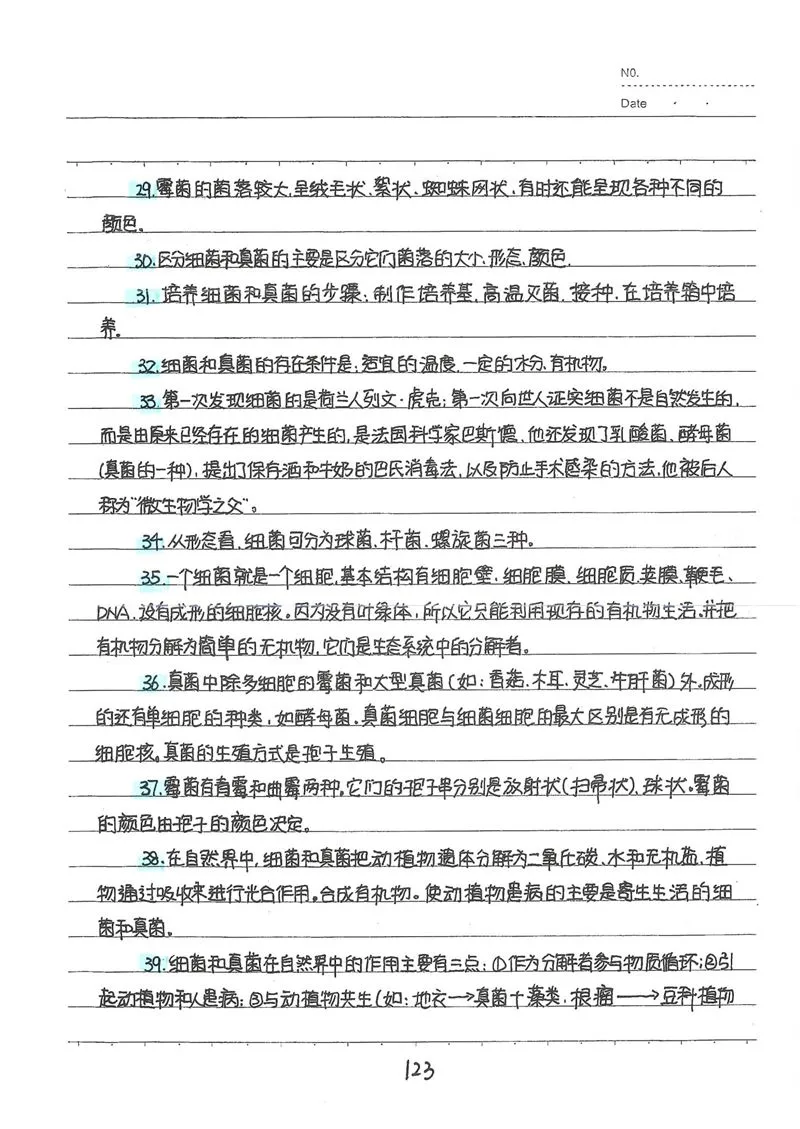 NO.
Date
29.霉菌的菌落较大,呈绒毛状、絮状、蜘蛛网状,有时还能呈现各种不同的
颜色。
30.区分细菌和真菌的主要是区分它们菌落的大小、形态、颜色.
31.培养细菌和真菌的步骤:制作培养基,高温灭菌,接种,在培养箱中培
养。
32.细菌和真菌的存在条件是:适宜的温度,一定的水分,有机物。
33.第一次发现细菌的是荷兰人列文·虎克;第一次向世人证实细菌不是自然发生的,
而是由原来已经存在的细菌产生的,是法国科学家巴斯德,他还发现了乳酸菌、酵母菌
(真菌的一种),提出了保存酒和牛奶的巴氏消毒法,以及防止手术感染的方法,他被后人
称为“微生物学之父”。
34.从形态看,细菌可分为球菌、杆菌、螺旋菌三种。
35.一个细菌就是一个细胞,基本结构有细胞壁、细胞膜、细胞质、荚膜、鞭毛、
DNA,没有成形的细胞核。因为没有叶绿体,所以它只能利用现存的有机物生活,并把
有机物分解为简单的无机物,它们是生态系统中的分解者。
36.真菌中除多细胞的霉菌和大型真菌(如:香菇、木耳、灵芝、牛肝菌)外,成形
的还有单细胞的种类,如酵母菌。真菌细胞与细菌细胞的最大区别是有无成形的
细胞核。真菌的生殖方式是孢子生殖。
37.霉菌有青霉和曲霉两种。它们的孢子串分别是放射状(扫帚状)、球状。霉菌
的颜色由孢子的颜色决定。
38.在自然界中,细菌和真菌把动植物遗体分解为二氧化碳、水和无机盐,植
物通过吸收来进行光合作用。合成有机物。使动植物患病的主要是寄生生活的细
菌和真菌。
39.细菌和真菌在自然界中的作用主要有三点:①作为分解者参与物质循环;②引
起动植物和人患病;③与动植物共生(如:地衣→真菌+藻类,根瘤→豆科植物
123